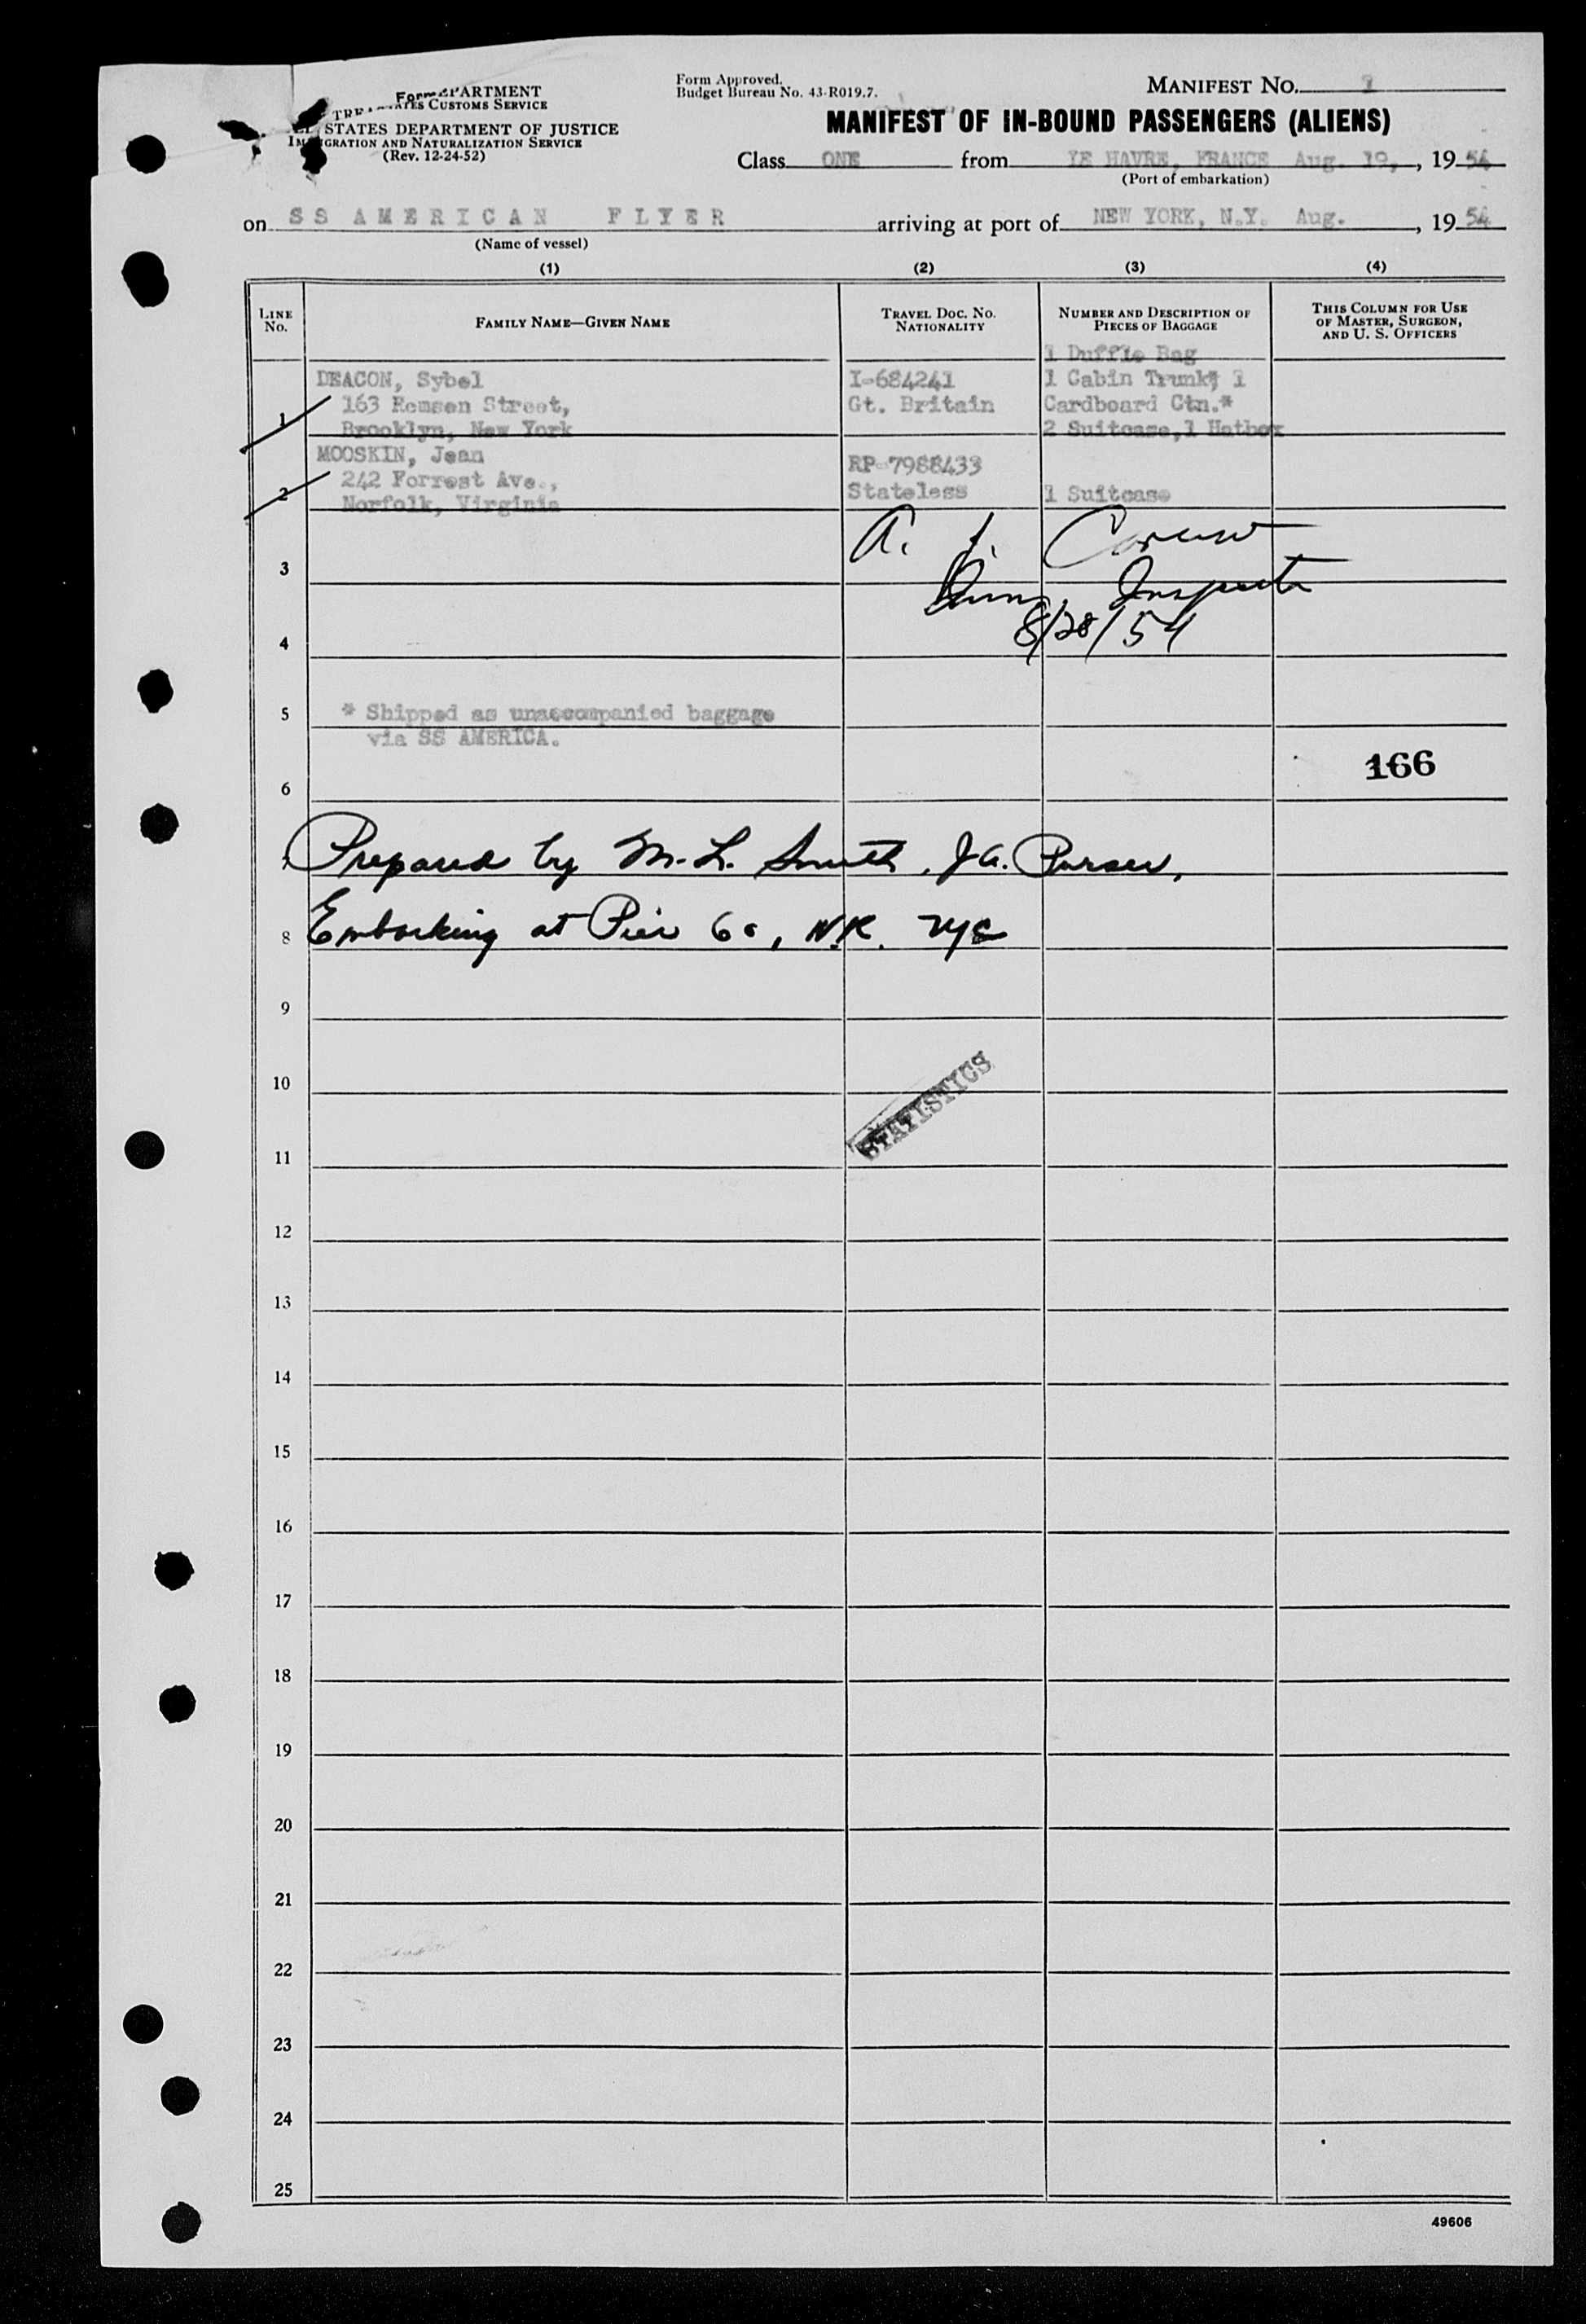 Form
DEPARTMENT
CUSTOMS SERVICE
STATES DEPARTMENT OF JUSTICE
IMMIGRATION AND NATURALIZATION SERVICE
(Rev. 12-24-52)
Form Approved.
Budget Bureau No. 43-R019.7.
MANIFEST No. 1
MANIFEST OF IN-BOUND PASSENGERS (ALIENS)
Class ONE from LE HAVRE, FRANCE Aug. 19, , 19 54
(Port of embarkation)
on SS AMERICAN FLYER arriving at port of NEW YORK, N.Y. Aug. , 19 54
(Name of vessel)
(1) (2) (3) (4)
LINE No. FAMILY NAME—GIVEN NAME TRAVEL DOC. NO. NATIONALITY NUMBER AND DESCRIPTION OF PIECES OF BAGGAGE THIS COLUMN FOR USE OF MASTER, SURGEON, AND U. S. OFFICERS
1 Duffle Bag
DEACON, Sybel I-684241 1 Cabin Trunk, 1
1 163 Remsen Street, Gt. Britain Cardboard Ctn.*
Brooklyn, New York 2 Suitcase,1 Hatbox
MOOSKIN, Jean RP-7988433
2 242 Forrest Ave., Stateless 1 Suitcase
Norfolk, Virginia
A. J. Caruso
3
Imm. Inspector
8/28/54
4
5 * Shipped as unaccompanied baggage
via SS AMERICA.
166
6
7 Prepared by M. L. Smith, Ja. Purser,
8 Embarking at Pier 60, N.R. NYC
9
10
STATISTICS
11
12
13
14
15
16
17
18
19
20
21
22
23
24
25
49606